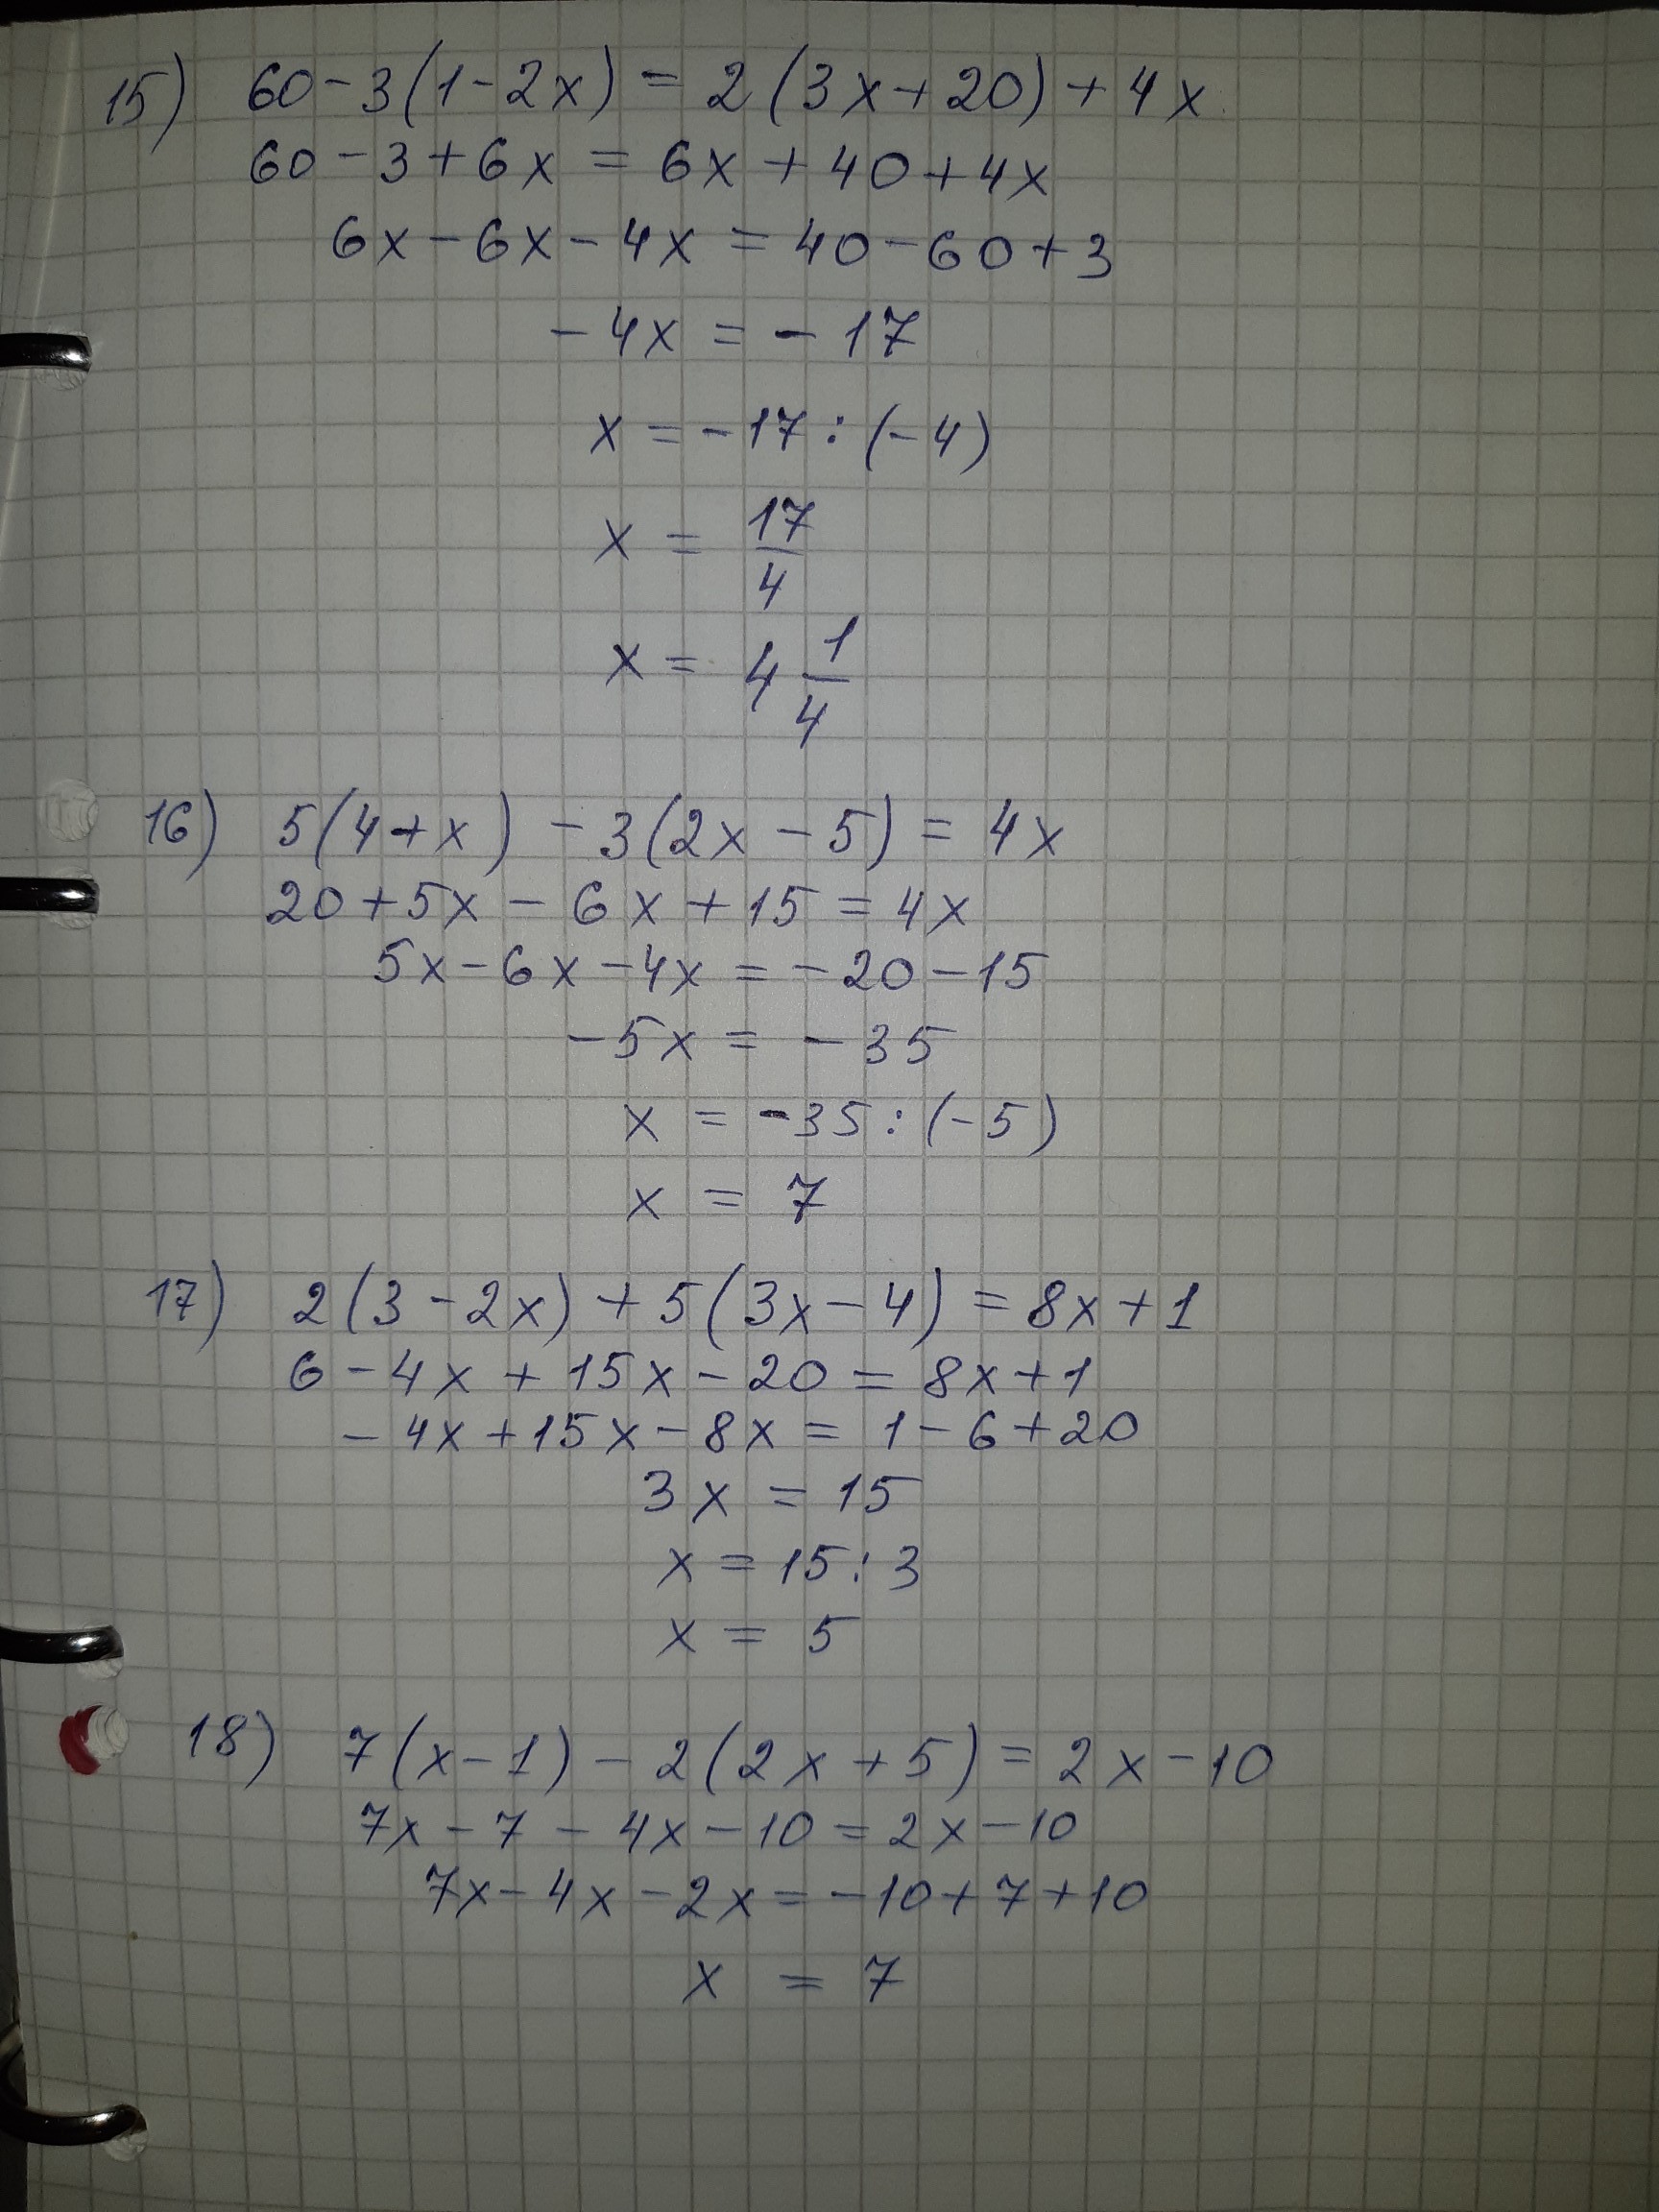 15) 60-3(1-2x) = 2(3x+20)+4x
60-3+6x = 6x+40+4x
6x-6x-4x = 40-60+3
-4x = -17
x = -17:(-4)
x = 17/4
x = 4 1/4
16) 5(4+x)-3(2x-5) = 4x
20+5x-6x+15 = 4x
5x-6x-4x = -20-15
-5x = -35
x = -35:(-5)
x = 7
17) 2(3-2x)+5(3x-4) = 8x+1
6-4x+15x-20 = 8x+1
-4x+15x-8x = 1-6+20
3x = 15
x = 15:3
x = 5
18) 7(x-1)-2(2x+5) = 2x-10
7x-7-4x-10 = 2x-10
7x-4x-2x = -10+7+10
x = 7